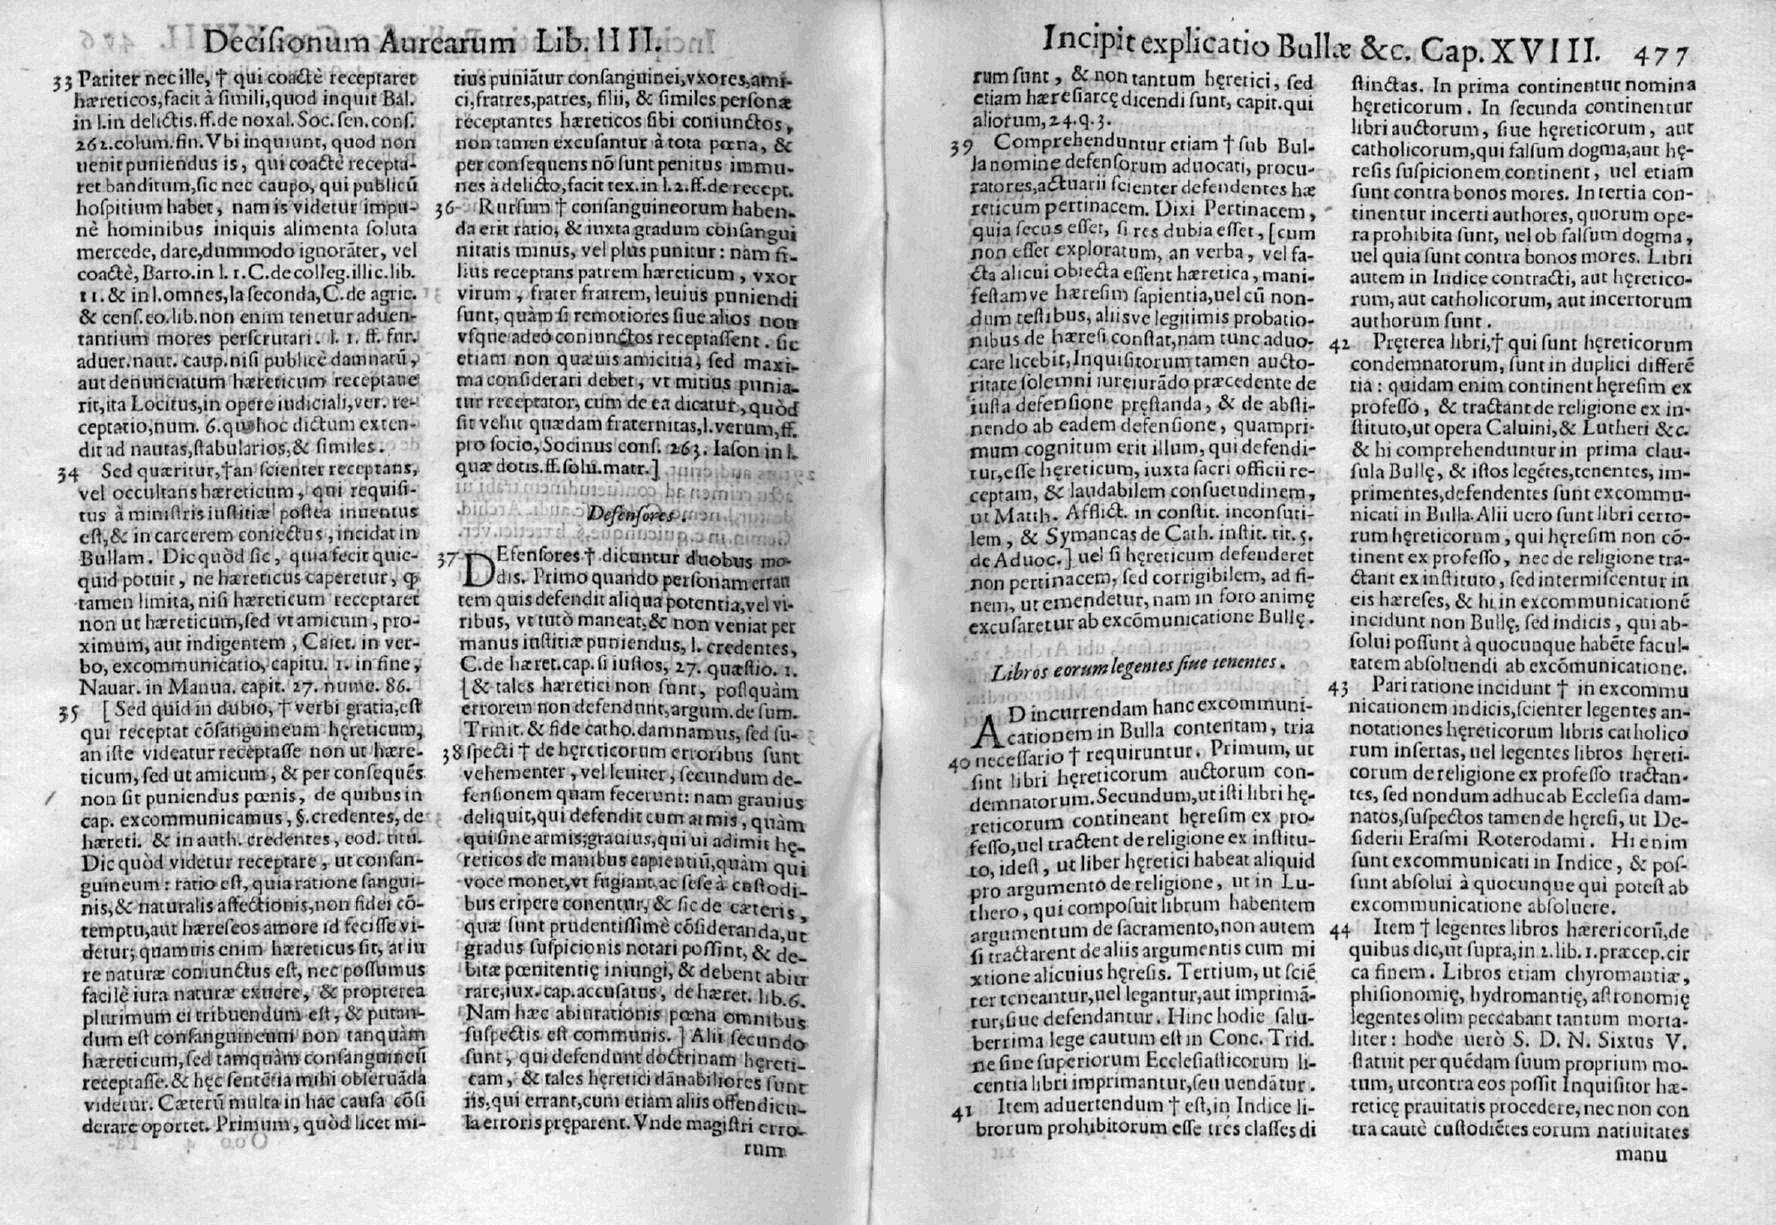 Decisionum Aurearum Lib. IIII.
33 Pariter nec ille, † qui coactè receptaret
hæreticos, facit à simili, quod inquit Bal.
in l. in delictis. ff. de noxal. Soc. sen. cons.
262. colum. fin. Vbi inquiunt, quod non
uenit puniendus is, qui coactè recepta-
ret banditum, sic nec caupo, qui publicũ
hospitium habet, nam is videtur impu-
nè hominibus iniquis alimenta soluta
mercede, dare, dummodo ignorãter, vel
coactè, Barto. in l. 1. C. de colleg. illic. lib.
11. & in l. omnes, la seconda, C. de agric.
& cens. eo. lib. non enim tenetur aduen-
tantium mores perscrutari. l. 1. ff. fur.
aduer. naut. caup. nisi publicè damnatũ,
aut denunciatum hæreticum receptaue
rit, ita Locitus, in opere iudiciali, ver. re-
ceptatio, num. 6. qui hoc dictum exten-
dit ad nautas, stabularios, & similes.
34 Sed quæritur, † an scienter receptans,
vel occultans hæreticum, qui requisi-
tus à ministris iustitiæ postea inuentus
est, & in carcerem coniectus, incidat in
Bullam. Dic quòd sic, quia fecit quic-
quid potuit, ne hæreticus caperetur, ꝙ
tamen limita, nisi hæreticum receptaret
non ut hæreticum, sed vt amicum, pro-
ximum, aut indigentem, Caiet. in ver-
bo, excommunicatio, capitu. 1. in fine,
Nauar. in Manua. capit. 27. nume. 86.
35 [Sed quid in dubio, † verbi gratia, est
qui receptat cõsanguineum hęreticum,
an iste videatur receptasse non ut hære-
ticum, sed ut amicum, & per consequẽs
non sit puniendus pœnis, de quibus in
cap. excommunicamus, §. credentes, de
hæreti. & in auth. credentes, eod. titu.
Dic quòd videtur receptare, ut consan-
guineum: ratio est, quia ratione sangui-
nis, & naturalis affectionis, non fidei cõ-
temptu, aut hæreseos amore id fecisse vi-
detur; quamuis enim hæreticus sit, at iu
re naturæ coniunctus est, nec possumus
facilè iura naturæ exuere, & propterea
plurimum ei tribuendum est, & putan-
dum est consanguineum non tanquàm
hæreticum, sed tamquàm consanguineũ
receptasse. & hęc sentẽtia mihi obseruãda
videtur. Cæterũ multa in hac causa cõsi
derare oportet. Primum, quòd licet mi-
tius puniãtur consanguinei, vxores, ami-
ci, fratres, patres, filii, & similes personæ
receptantes hæreticos sibi coniunctos,
non tamen excusantur à tota pœna, &
per consequens nõ sunt penitus immu-
nes à delicto, facit tex. in l. 2. ff. de recept.
36 Rursum † consanguineorum haben-
da erit ratio, & iuxta gradum consangui
nitatis minus, vel plus punitur: nam fi-
lius receptans patrem hæreticum, vxor
virum, frater fratrem, leuius puniendi
sunt, quàm si remotiores siue alios non
vsque adeò coniunctos receptassent. sic
etiam non quæuis amicitia, sed maxi-
ma considerari debet, vt mitius punia-
tur receptator, cum de ea dicatur, quòd
sit velut quædam fraternitas, l. verum, ff.
pro socio, Socinus cons. 263. Iason in l.
quæ dotis. ff. solu. matr.]
Defensores.
37 DEfensores † dicuntur duobus mo-
dis. Primo quando personam erran
tem quis defendit aliqua potentia, vel vi-
ribus, vt tutò maneat, & non veniat per
manus iustitiæ puniendus, l. credentes,
C. de hæret. cap. si iustos, 27. quæstio. 1.
[& tales hæretici non sunt, postquàm
errorem non defendunt, argum. de sum.
Trinit. & fide catho. damnamus, sed su-
38 specti † de hęreticorum erroribus sunt
vehementer, vel leuiter, secundum de-
fensionem quam fecerunt: nam grauius
deliquit, qui defendit cum armis, quàm
qui sine armis; grauius, qui ui adimit hę-
reticos de manibus capientiũ, quàm qui
voce monet, vt fugiant, ac sese à custodi-
bus eripere conentur, & sic de cæteris,
quæ sunt prudentissimè cõsideranda, ut
gradus suspicionis notari possint, & de-
bitæ pœnitentię iniungi, & debent abiu
rare, iux. cap. accusatus, de hæret. lib. 6.
Nam hæc abiurationis pœna omnibus
suspectis est communis.] Alii secundo
sunt, qui defendunt doctrinam hęreti-
cam, & tales hęretici dãnabiliores sunt
iis, qui errant, cum etiam aliis offendicu-
la erroris pręparent. Vnde magistri erro-
rum
Incipit explicatio Bullæ &c. Cap. XVIII. 477
rum sunt, & non tantum hęretici, sed
etiam hæresiarcę dicendi sunt, capit. qui
aliorum, 24. q. 3.
39 Comprehenduntur etiam † sub Bul-
la nomine defensorum aduocati, procu-
ratores, actuarii scienter defendentes hæ
reticum pertinacem. Dixi Pertinacem,
quia secus esset, si res dubia esset, [cum
non esset exploratum, an verba, vel fa-
cta alicui obiecta essent hæretica, mani-
festamve hæresim sapientia, uel cũ non-
dum testibus, aliisve legitimis probatio-
nibus de hæresi constat, nam tunc aduo-
care licebit, Inquisitorum tamen aucto-
ritate solemni iureiurãdo præcedente de
iusta defensione pręstanda, & de absti-
nendo ab eadem defensione, quampri-
mum cognitum erit illum, qui defendi-
tur, esse hęreticum, iuxta sacri officii re-
ceptam, & laudabilem consuetudinem,
ut Matth. Afflict. in constit. inconsuti-
lem, & Symancas de Cath. instit. tit. 5.
de Aduoc.] uel si hęreticum defenderet
non pertinacem, sed corrigibilem, ad fi-
nem, ut emendetur, nam in foro animę
excusaretur ab excõmunicatione Bullę.
Libros eorum legentes siue tenentes.
AD incurrendam hanc excommuni-
cationem in Bulla contentam, tria
40 necessario † requiruntur. Primum, ut
sint libri hęreticorum auctorum con-
demnatorum. Secundum, ut isti libri hę-
reticorum contineant hęresim ex pro-
fesso, uel tractent de religione ex institu-
to, idest, ut liber hęretici habeat aliquid
pro argumento de religione, ut in Lu-
thero, qui composuit librum habentem
argumentum de sacramento, non autem
si tractarent de aliis argumentis cum mi
xtione alicuius hęresis. Tertium, ut sciẽ
ter teneantur, uel legantur, aut imprimã-
tur, siue defendantur. Hinc hodie salu-
berrima lege cautum est in Conc. Trid.
ne sine superiorum Ecclesiasticorum li-
centia libri imprimantur, seu uendãtur.
41 Item aduertendum † est, in Indice li-
brorum prohibitorum esse tres classes di
stinctas. In prima continentur nomina
hęreticorum. In secunda continentur
libri auctorum, siue hęreticorum, aut
catholicorum, qui falsum dogma, aut hę-
resis suspicionem continent, uel etiam
sunt contra bonos mores. In tertia con-
tinentur incerti authores, quorum ope-
ra prohibita sunt, uel ob falsum dogma,
uel quia sunt contra bonos mores. Libri
autem in Indice contracti, aut hęretico-
rum, aut catholicorum, aut incertorum
authorum sunt.
42 Pręterea libri, † qui sunt hęreticorum
condemnatorum, sunt in duplici differẽ
tia: quidam enim continent hęresim ex
professo, & tractant de religione ex in-
stituto, ut opera Caluini, & Lutheri &c.
& hi comprehenduntur in prima clau-
sula Bullę, & istos legẽtes, tenentes, im-
primentes, defendentes sunt excommu-
nicati in Bulla. Alii uero sunt libri certo-
rum hęreticorum, qui hęresim non cõ-
tinent ex professo, nec de religione tra-
ctant ex instituto, sed intermiscentur in
eis hæreses, & hi in excommunicationẽ
incidunt non Bullę, sed indicis, qui ab-
solui possunt à quocunque habẽte facul-
tatem absoluendi ab excõmunicatione.
43 Pari ratione incidunt † in excommu
nicationem indicis, scienter legentes an-
notationes hęreticorum libris catholico
rum insertas, uel legentes libros hęreti-
corum de religione ex professo tractan-
tes, sed nondum adhuc ab Ecclesia dam-
natos, suspectos tamen de hęresi, ut De-
siderii Erasmi Roterodami. Hi enim
sunt excommunicati in Indice, & pos-
sunt absolui à quocunque qui potest ab
excommunicatione absoluere.
44 Item † legentes libros hærericorũ, de
quibus dic, ut supra, in 2. lib. 1. præcep. cir
ca finem. Libros etiam chyromantiæ,
phisionomię, hydromantię, astronomię
legentes olim peccabant tantum morta-
liter: hodie uerò S. D. N. Sixtus V.
statuit per quẽdam suum proprium mo-
tum, ut contra eos possit Inquisitor hæ-
reticę prauitatis procedere, nec non con
tra cautè custodiẽtes eorum natiuitates
manu